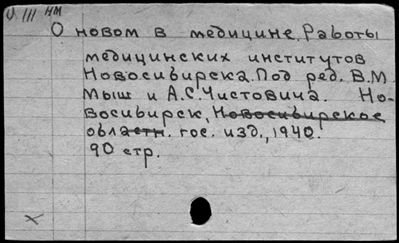 V III НМ
О новом в медицине. Работы
медицинских институтов
Новосибирска. Под ред. В.М.
Мыш и А.С. Чистовича. Но-
восибирск, Новосибирское
областн. гос. изд., 1940.
90 стр.